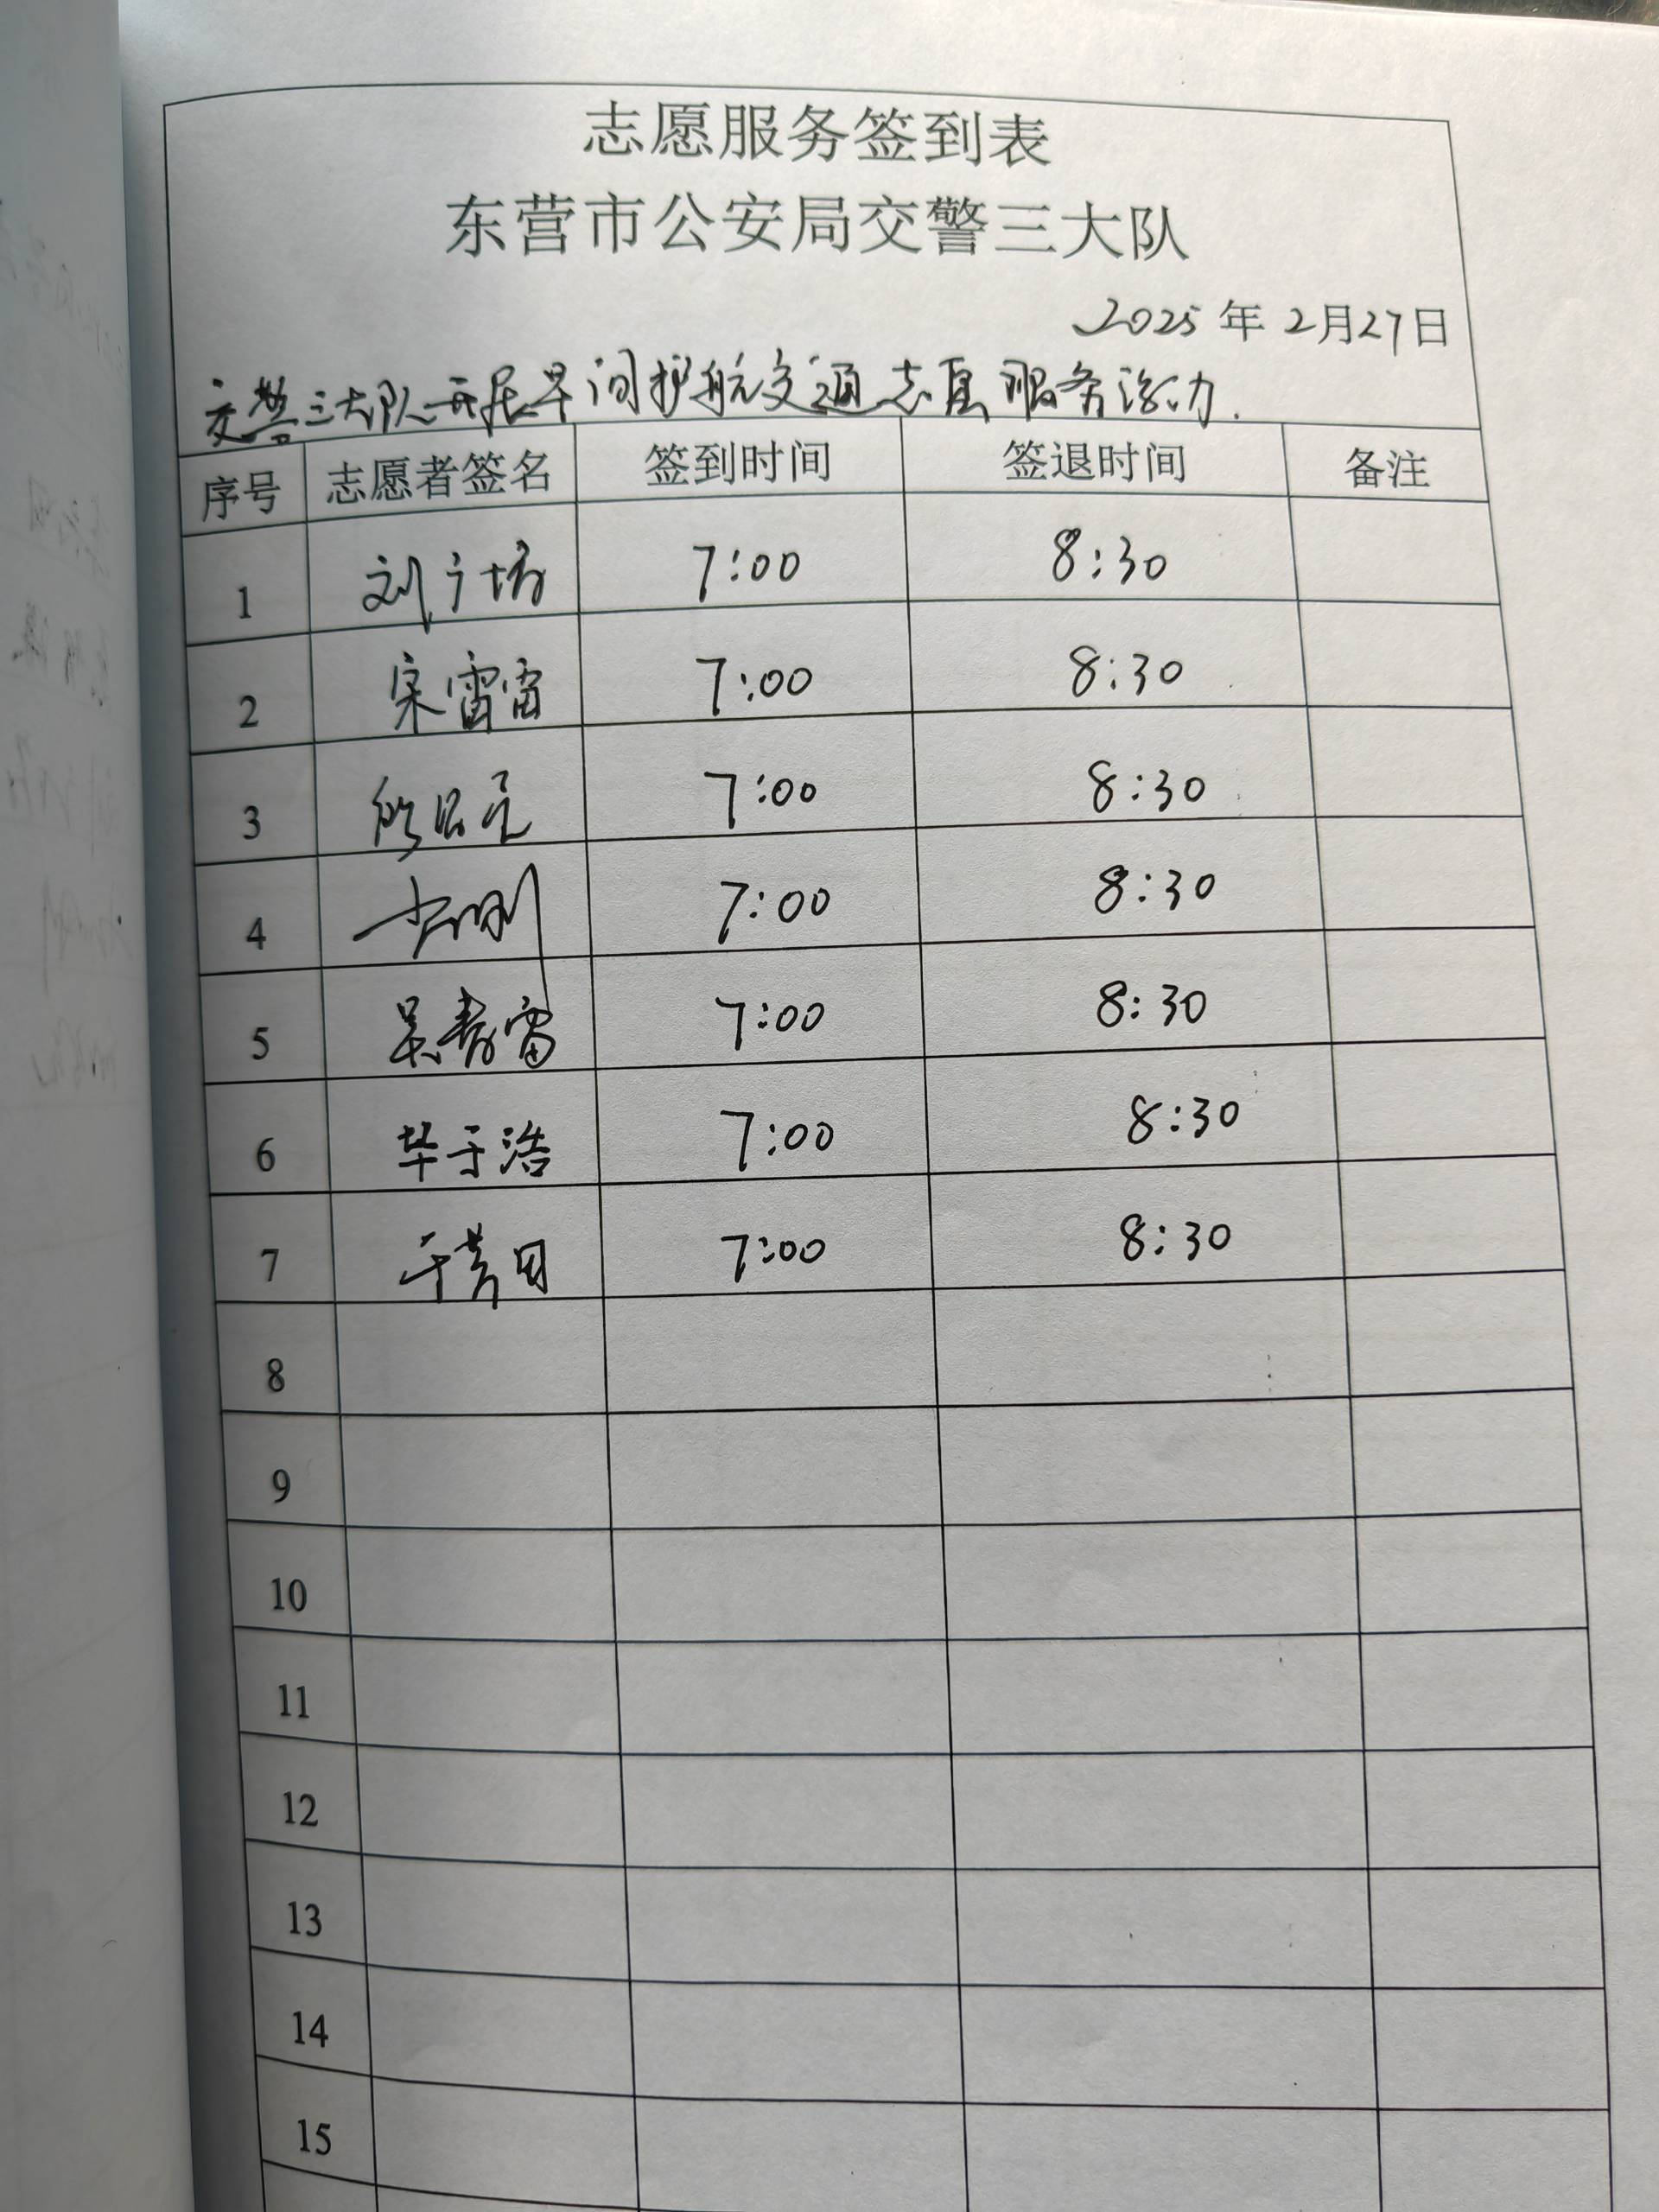 志愿服务签到表
东营市公安局交警三大队
2025年2月27日
交警三大队开展早间护航交通志愿服务活动.
序号 志愿者签名 签到时间 签退时间 备注
1 刘广坊 7:00 8:30
2 宋雷雷 7:00 8:30
3 7:00 8:30
4 7:00 8:30
5 吴寿雷 7:00 8:30
6 毕于浩 7:00 8:30
7 7:00 8:30
8
9
10
11
12
13
14
15